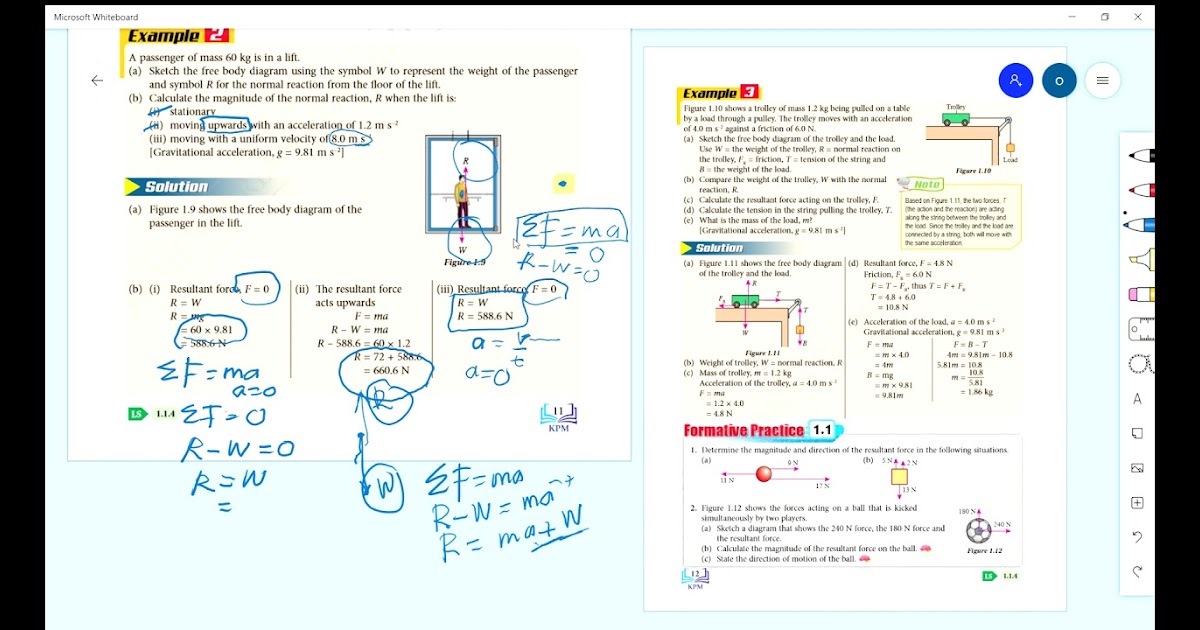 Microsoft Whiteboard
Example 2
A passenger of mass 60 kg is in a lift.
(a) Sketch the free body diagram using the symbol W to represent the weight of the passenger
and symbol R for the normal reaction from the floor of the lift.
(b) Calculate the magnitude of the normal reaction, R when the lift is:
(i) stationary
(ii) moving upwards with an acceleration of 1.2 m s⁻²
(iii) moving with a uniform velocity of 8.0 m s⁻¹
[Gravitational acceleration, g = 9.81 m s⁻²]
Solution
(a) Figure 1.9 shows the free body diagram of the
passenger in the lift.
R
W
Figure 1.9
ΣF = ma
= 0
R-W=0
(b) (i) Resultant force, F = 0
R = W
R = mg
= 60 × 9.81
= 588.6 N
(ii) The resultant force
acts upwards
F = ma
R – W = ma
R – 588.6 = 60 × 1.2
R = 72 + 588.6
= 660.6 N
(iii) Resultant force, F = 0
R = W
R = 588.6 N
a = v
t
a=0
ΣF=ma
a=0
ΣF=0
R-W=0
R=W
=
R
W
ΣF=ma
R-W=ma
R= ma+W
LS 1.1.4
11
KPM
O
Example 3
Figure 1.10 shows a trolley of mass 1.2 kg being pulled on a table
by a load through a pulley. The trolley moves with an acceleration
of 4.0 m s⁻² against a friction of 6.0 N.
(a) Sketch the free body diagram of the trolley and the load.
Use W = the weight of the trolley, R = normal reaction on
the trolley, FR = friction, T = tension of the string and
B = the weight of the load.
(b) Compare the weight of the trolley, W with the normal
reaction, R.
(c) Calculate the resultant force acting on the trolley, F.
(d) Calculate the tension in the string pulling the trolley, T.
(e) What is the mass of the load, m?
[Gravitational acceleration, g = 9.81 m s⁻²]
Trolley
Load
Figure 1.10
Note
Based on Figure 1.11, the two forces, T
(the action and the reaction) are acting
along the string between the trolley and
the load. Since the trolley and the load are
connected by a string, both will move with
the same acceleration.
Solution
(a) Figure 1.11 shows the free body diagram
of the trolley and the load.
R
T
FR
T
W
B
Figure 1.11
(b) Weight of trolley, W = normal reaction, R
(c) Mass of trolley, m = 1.2 kg
Acceleration of the trolley, a = 4.0 m s⁻²
F = ma
= 1.2 × 4.0
= 4.8 N
(d) Resultant force, F = 4.8 N
Friction, FR = 6.0 N
F = T – FR, thus T = F + FR
T = 4.8 + 6.0
= 10.8 N
(e) Acceleration of the load, a = 4.0 m s⁻²
Gravitational acceleration, g = 9.81 m s⁻²
F = ma
= m × 4.0
= 4m
B = mg
= m × 9.81
= 9.81m
F = B – T
4m = 9.81m – 10.8
5.81m = 10.8
m = 10.8
5.81
= 1.86 kg
Formative Practice 1.1
1. Determine the magnitude and direction of the resultant force in the following situations.
(a)
9 N
11 N
17 N
(b)
5 N
2 N
13 N
2. Figure 1.12 shows the forces acting on a ball that is kicked
simultaneously by two players.
(a) Sketch a diagram that shows the 240 N force, the 180 N force and
the resultant force.
(b) Calculate the magnitude of the resultant force on the ball.
(c) State the direction of motion of the ball.
180 N
240 N
Figure 1.12
12
KPM
LS 1.1.4
A